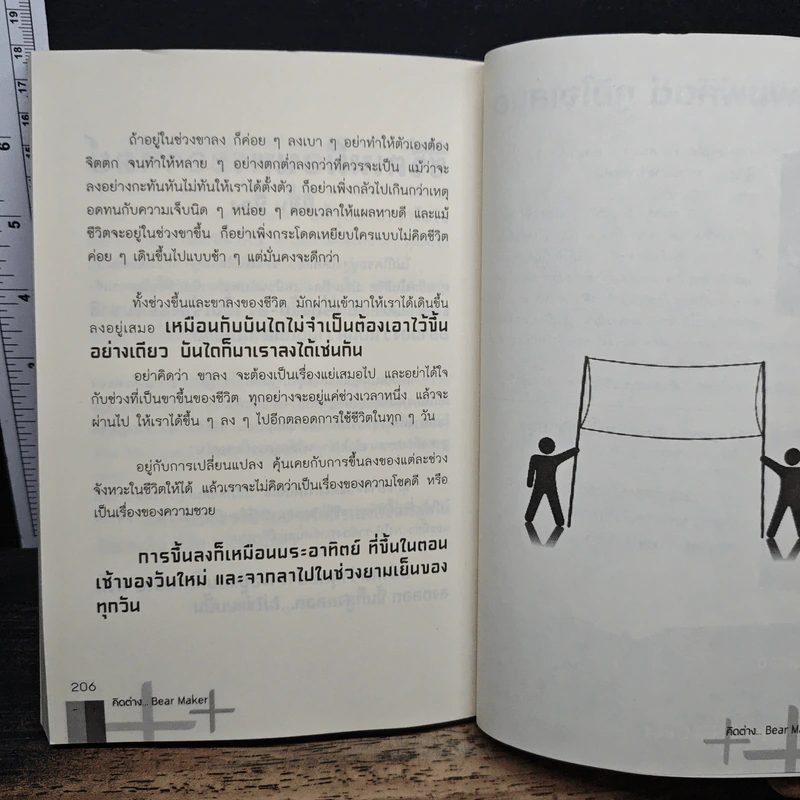 ถ้าอยู่ในช่วงขาลง ก็ค่อย ๆ ลงเบา ๆ อย่าทำให้ตัวเองต้อง
จิตตก จนทำให้หลาย ๆ อย่างตกต่ำลงกว่าที่ควรจะเป็น แม้ว่าจะ
ลงอย่างกะทันหันไม่ทันให้เราได้ตั้งตัว ก็อย่าเพิ่งกลัวไปเกินกว่าเหตุ
อดทนกับความเจ็บนิด ๆ หน่อย ๆ คอยเวลาให้แผลหายดี และแม้
ชีวิตจะอยู่ในช่วงขาขึ้น ก็อย่าเพิ่งกระโดดเหยียบใครแบบไม่คิดชีวิต
ค่อย ๆ เดินขึ้นไปแบบช้า ๆ แต่มั่นคงจะดีกว่า
ทั้งช่วงขึ้นและขาลงของชีวิต มักผ่านเข้ามาให้เราได้เดินขึ้น
ลงอยู่เสมอ เหมือนกับบันไดไม่จำเป็นต้องเอาไว้ขึ้น
อย่างเดียว บันไดก็มาเราลงได้เช่นกัน
อย่าคิดว่า ขาลง จะต้องเป็นเรื่องแย่เสมอไป และอย่าได้ใจ
กับช่วงที่เป็นขาขึ้นของชีวิต ทุกอย่างจะอยู่แค่ช่วงเวลาหนึ่ง แล้วจะ
ผ่านไป ให้เราได้ขึ้น ๆ ลง ๆ ไปอีกตลอดการใช้ชีวิตในทุก ๆ วัน
อยู่กับการเปลี่ยนแปลง คุ้นเคยกับการขึ้นลงของแต่ละช่วง
จังหวะในชีวิตให้ได้ แล้วเราจะไม่คิดว่าเป็นเรื่องของความโชคดี หรือ
เป็นเรื่องของความซวย
การขึ้นลงก็เหมือนพระอาทิตย์ ที่ขึ้นในตอน
เช้าของวันใหม่ และจากลาไปในช่วงยามเย็นของ
ทุกวัน
206
คิดต่าง... Bear Maker
คิดต่าง... Bear Ma
19
18
17
16
6
5
4